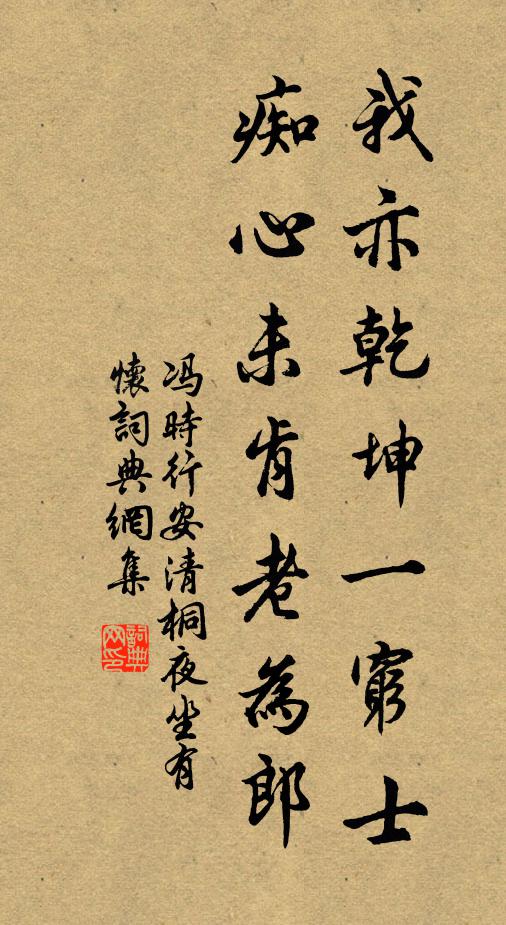 我亦乾坤一窮士
痴心未肯老為郎
冯時行安清桐夜坐有
懷詞典網集
詞典
网印